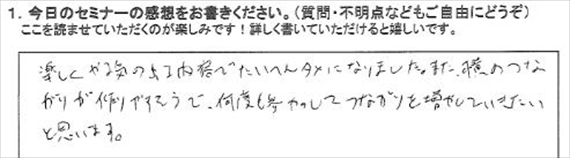 1. 今日のセミナーの感想をお書きください。(質問・不明点などもご自由にどうぞ)
ここを読ませていただくのが楽しみです！詳しく書いていただけると嬉しいです。
楽しくやる気の出る内容でたいへんタメになりました。また、横のつな
がりが作りやすそうで、何度も参加してつながりを増やしていきたい
と思います。